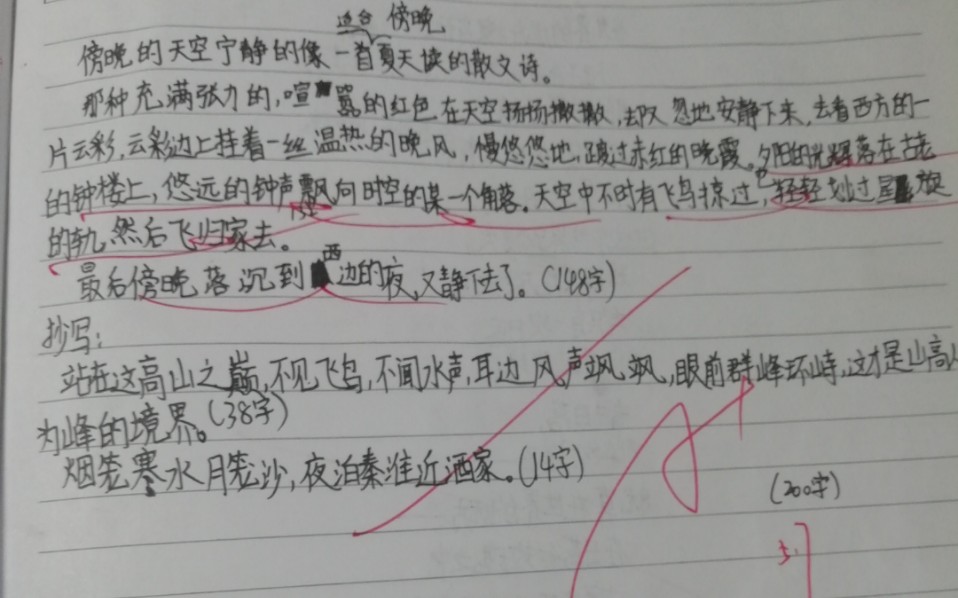 适合 傍晚
傍晚的天空宁静的像一首夏天读的散文诗。
那种充满张力的,喧嚣的红色在天空扬扬撒撒,却又忽地安静下来,去看西方的一
片云彩,云彩边上挂着一丝温热的晚风,慢悠悠地,踱过赤红的晚霞。夕阳的光辉落在古老
的钟楼上,悠远的钟声飘向时空的某一个角落。天空中不时有飞鸟掠过,轻轻划过星旋
的轨,然后飞归家去。
最后傍晚落沉到西边的夜,又静下去了。(148字)
抄写:
站在这高山之巅,不见飞鸟,不闻水声,耳边风声飒飒,眼前群峰环峙,这才是山高人
为峰的境界。(38字)
烟笼寒水月笼沙,夜泊秦淮近酒家。(14字)
(200字)
5.7